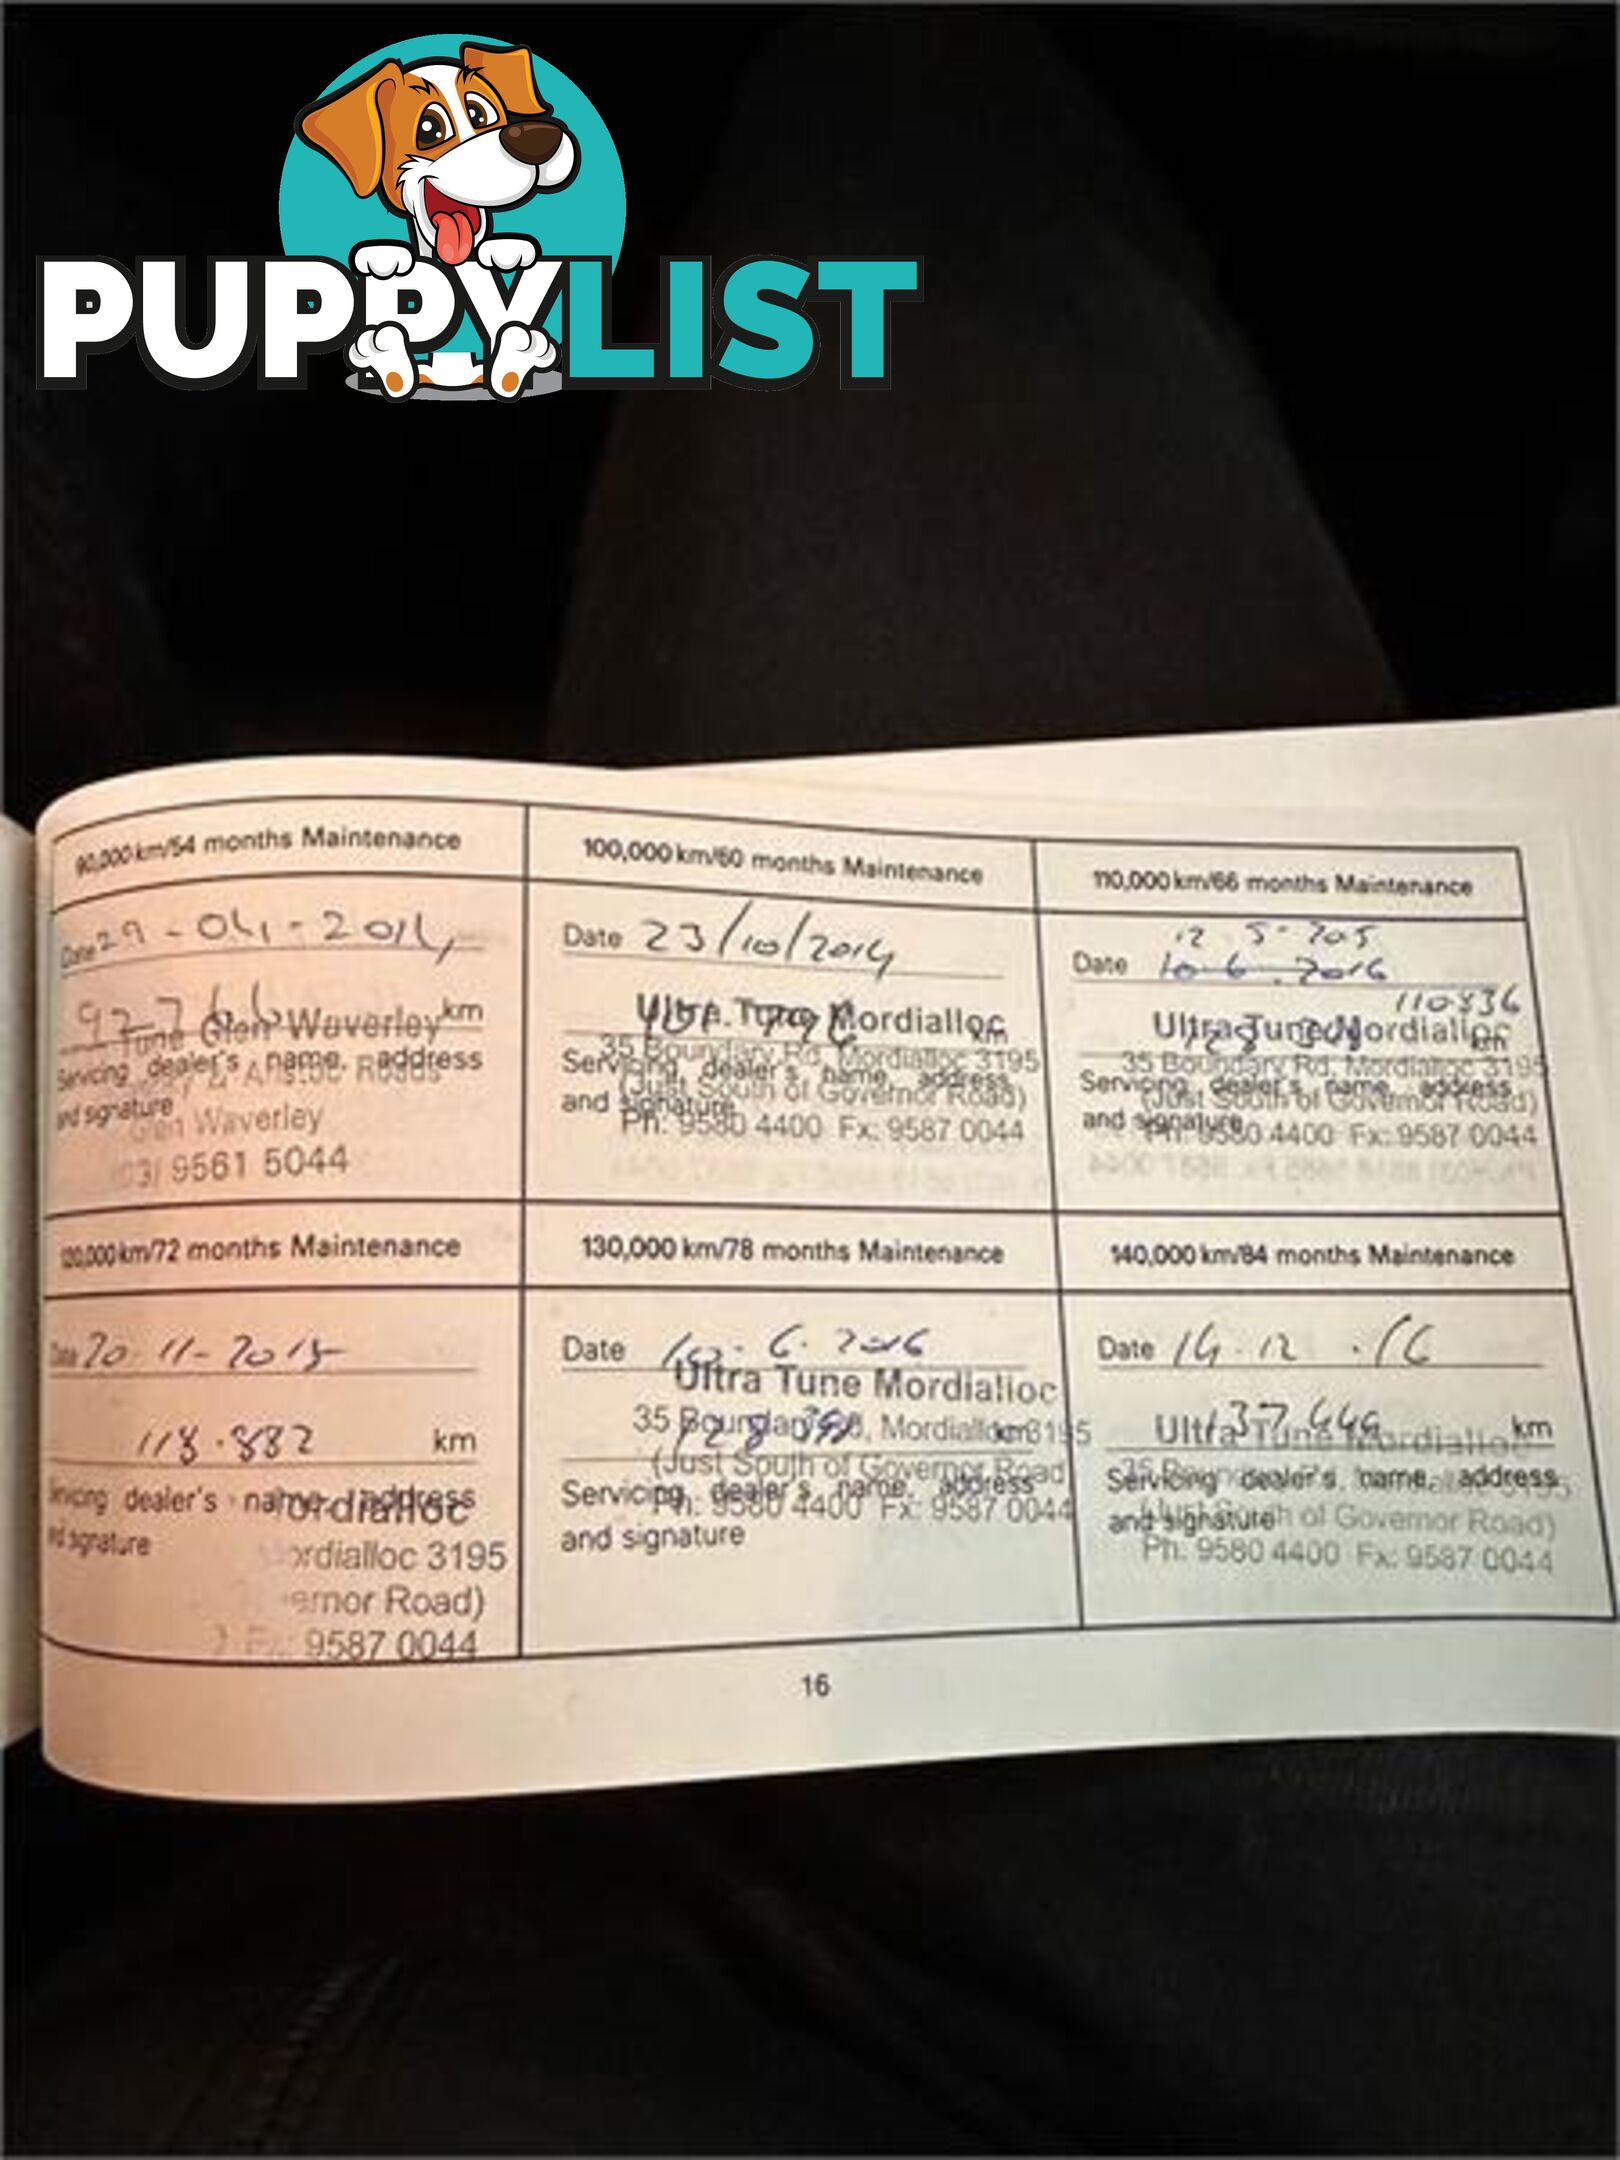 PUPPYLIST
90,000 km/54 months Maintenance
Date 29-04-2014
km
Tune Glen Waverley
Servicing dealer's name, address
and signature
Waverley
9561 5044
100,000 km/60 months Maintenance
Date 23/10/2014
km
Ultra Tune Mordialloc
35 Boundary Rd, Mordialloc 3195
Servicing dealer's name, address
(Just South of Governor Road)
and signature
Ph: 9580 4400 Fx: 9587 0044
110,000 km/66 months Maintenance
12 5
Date 10 6 . 2016
110836
Ultra Tune Mordialloc
km
35 Boundary Rd, Mordialloc 3195
Servicing dealer's name, address
(Just South of Governor Road)
and signature
Ph: 9580 4400 Fx: 9587 0044
120,000 km/72 months Maintenance
Date 20-11-2015
118.882 km
Servicing dealer's name, address
and signature
ordialloc
ordialloc 3195
ernor Road)
9587 0044
130,000 km/78 months Maintenance
Date 10. 6. 2016
Ultra Tune Mordialloc
35 Boundary Rd, Mordialloc 3195
km
(Just South of Governor Road
Servicing dealer's name, address
Ph: 9580 4400 Fx: 9587 0044
and signature
140,000 km/84 months Maintenance
Date 14.12 .16
137449 km
Ultra Tune Mordialloc
Servicing dealer's name, address
and signature
h of Governor Road)
Ph: 9580 4400 Fx: 9587 0044
16